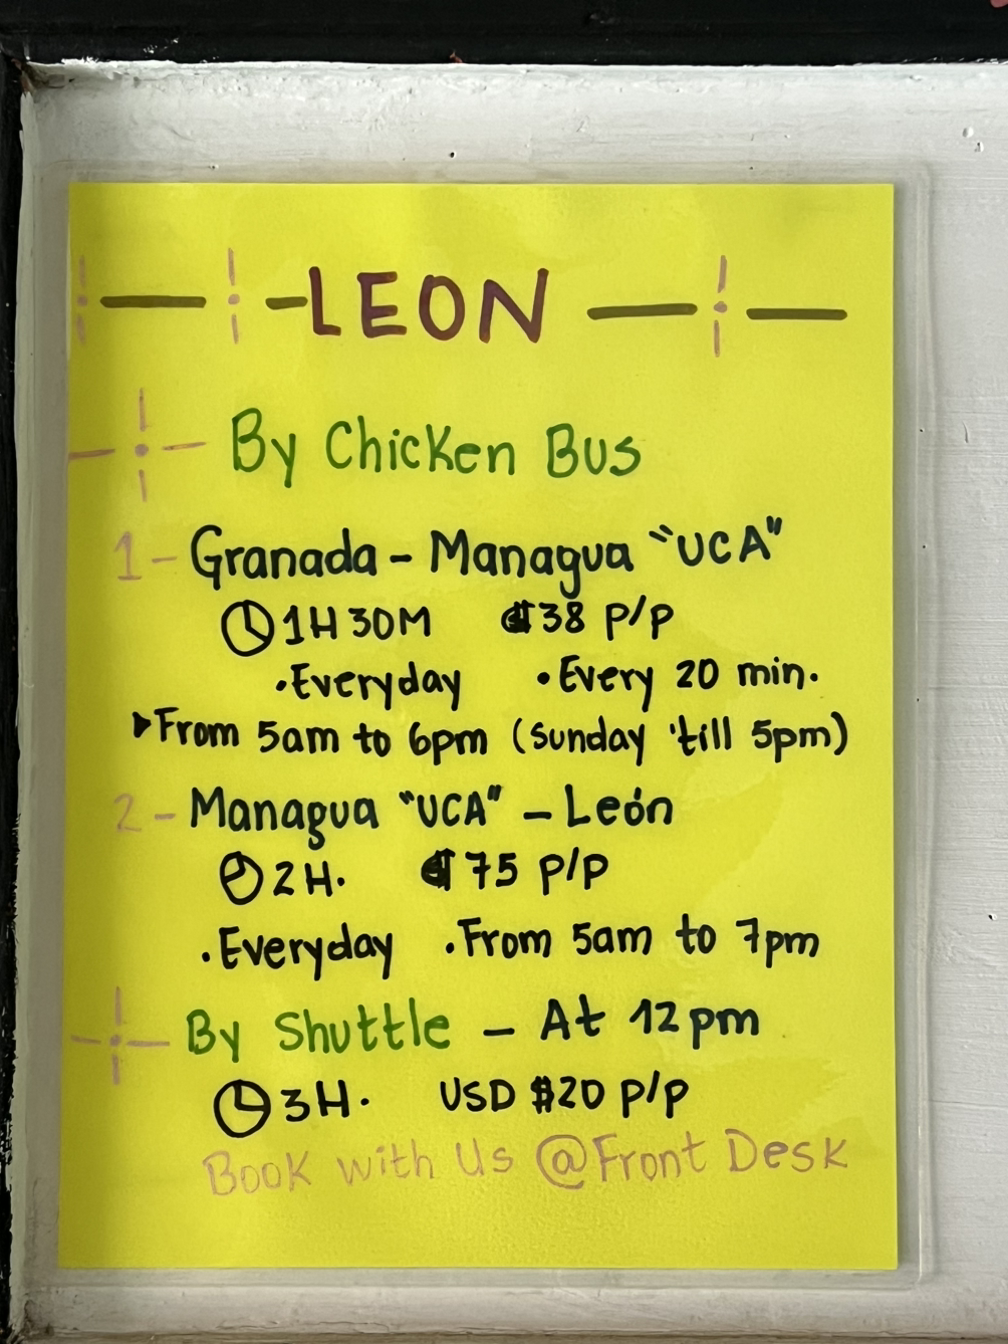 LEON
By Chicken Bus
1- Granada - Managua "UCA"
1H 30M ₡38 P/P
•Everyday •Every 20 min.
▶From 5am to 6pm (Sunday 'till 5pm)
2- Managua "UCA" - León
2H. ₡75 P/P
•Everyday •From 5am to 7pm
By Shuttle - At 12pm
3H. USD $20 P/P
Book with Us @Front Desk